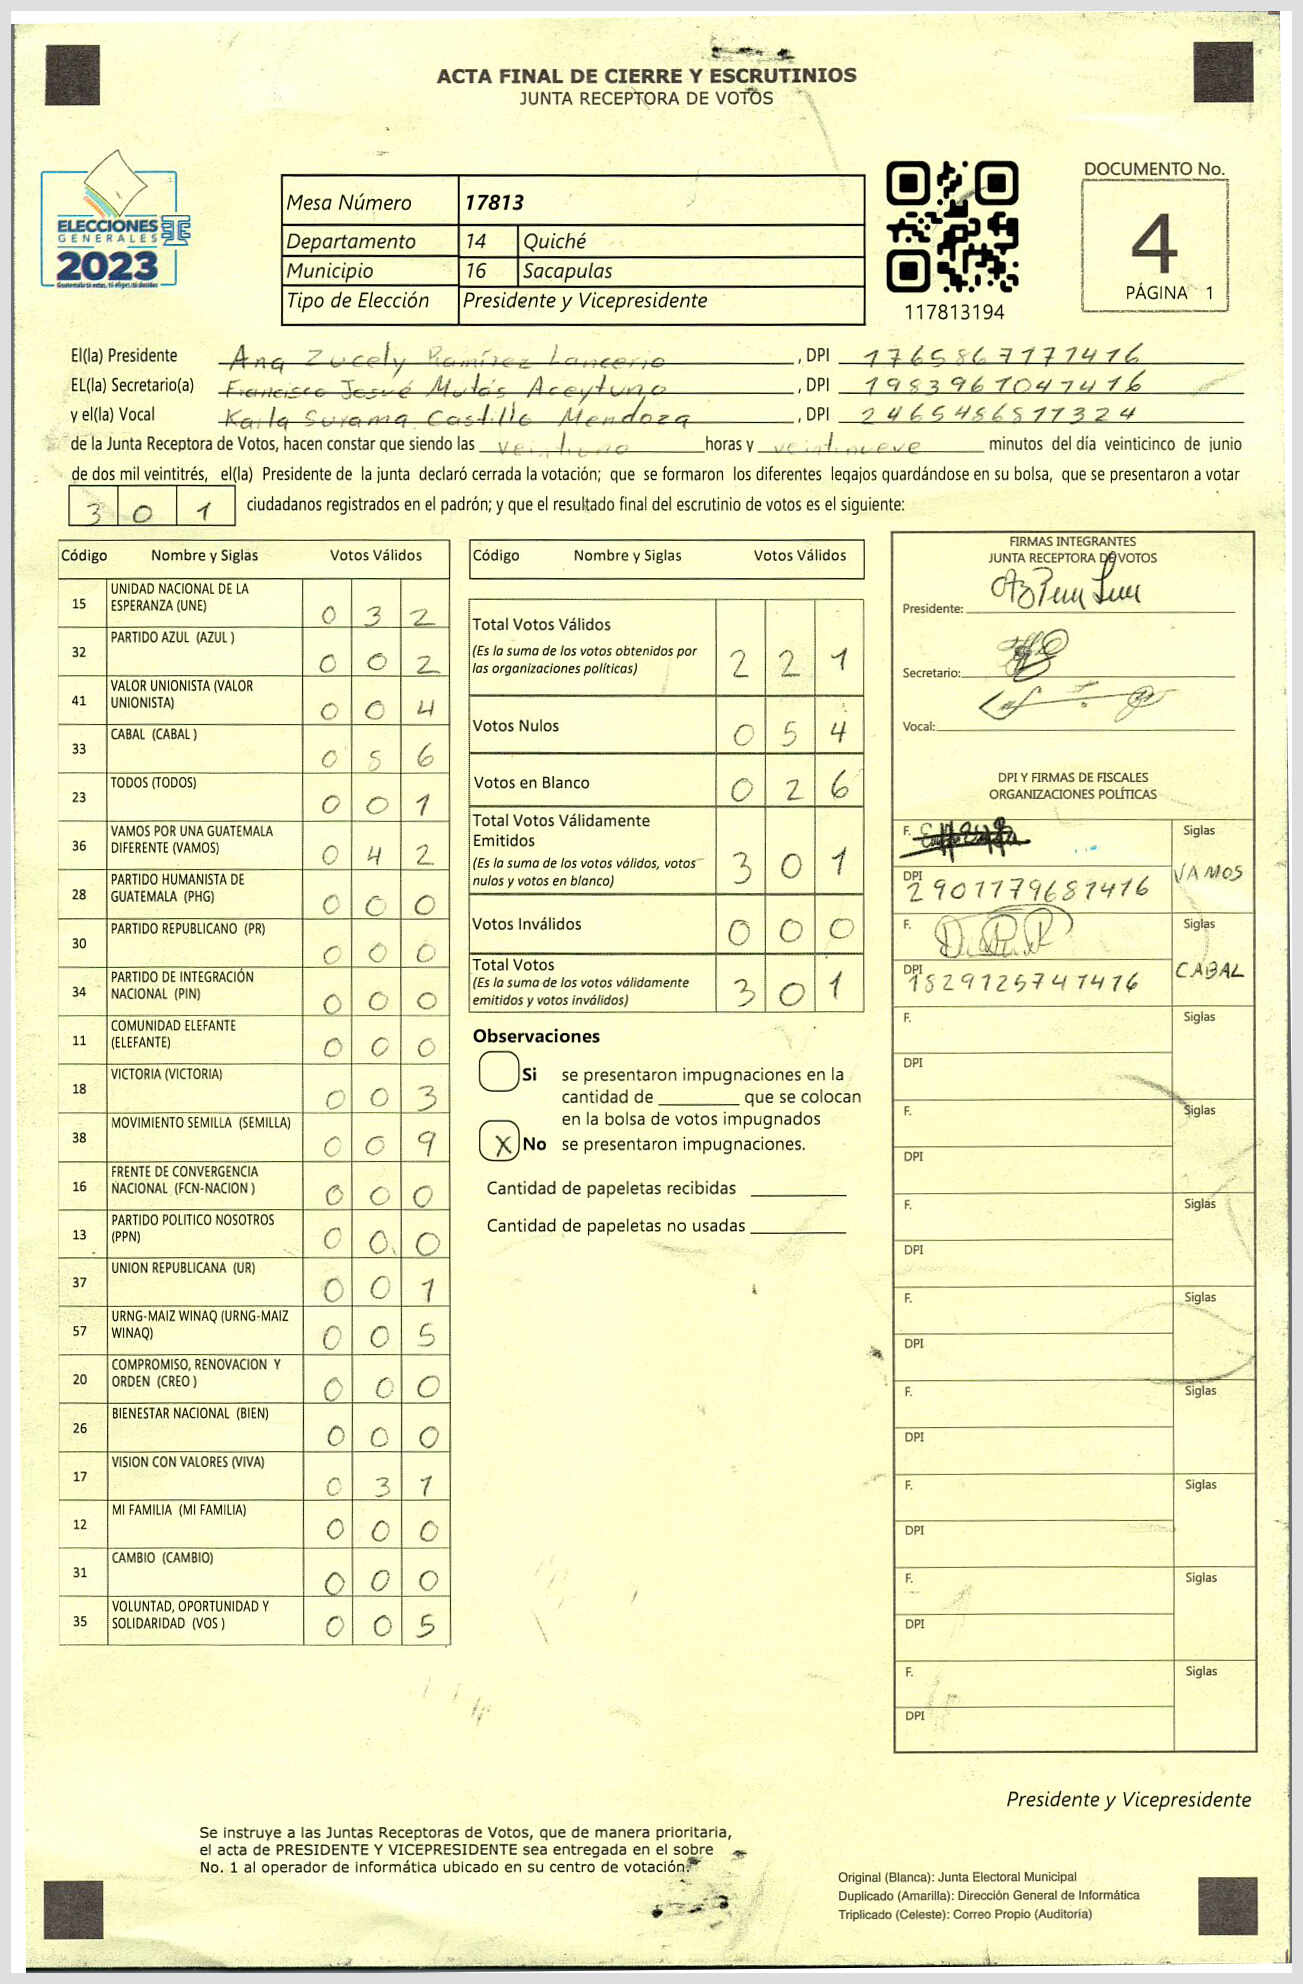 ACTA FINAL DE CIERRE Y ESCRUTINIOS
JUNTA RECEPTORA DE VOTOS
ELECCIONES
GENERALES
2023
Guatemala tú votas, tú eliges, tú decides
Mesa Número 17813
Departamento 14 Quiché
Municipio 16 Sacapulas
Tipo de Elección Presidente y Vicepresidente
117813194
DOCUMENTO No.
4
PÁGINA 1
El(la) Presidente Ana Zucely Ramírez Lancerio, DPI 1765867171416
EL(la) Secretario(a) Francisco Josué Mutás Aceytuno, DPI 1983961041416
y el(la) Vocal Karla Surama Castillo Mendoza, DPI 2465486811324
de la Junta Receptora de Votos, hacen constar que siendo las veintiuno horas y veintinueve minutos del día veinticinco de junio
de dos mil veintitrés, el(la) Presidente de la junta declaró cerrada la votación; que se formaron los diferentes legajos quardándose en su bolsa, que se presentaron a votar
301 ciudadanos registrados en el padrón; y que el resultado final del escrutinio de votos es el siguiente:
Código Nombre y Siglas Votos Válidos
15 UNIDAD NACIONAL DE LA ESPERANZA (UNE) 0 3 2
32 PARTIDO AZUL (AZUL ) 0 0 2
41 VALOR UNIONISTA (VALOR UNIONISTA) 0 0 4
33 CABAL (CABAL ) 0 8 6
23 TODOS (TODOS) 0 0 1
36 VAMOS POR UNA GUATEMALA DIFERENTE (VAMOS) 0 4 2
28 PARTIDO HUMANISTA DE GUATEMALA (PHG) 0 0 0
30 PARTIDO REPUBLICANO (PR) 0 0 0
34 PARTIDO DE INTEGRACIÓN NACIONAL (PIN) 0 0 0
11 COMUNIDAD ELEFANTE (ELEFANTE) 0 0 0
18 VICTORIA (VICTORIA) 0 0 3
38 MOVIMIENTO SEMILLA (SEMILLA) 0 0 9
16 FRENTE DE CONVERGENCIA NACIONAL (FCN-NACION ) 0 0 0
13 PARTIDO POLITICO NOSOTROS (PPN) 0 0 0
37 UNION REPUBLICANA (UR) 0 0 1
57 URNG-MAIZ WINAQ (URNG-MAIZ WINAQ) 0 0 5
20 COMPROMISO, RENOVACION Y ORDEN (CREO ) 0 0 0
26 BIENESTAR NACIONAL (BIEN) 0 0 0
17 VISION CON VALORES (VIVA) 0 3 1
12 MI FAMILIA (MI FAMILIA) 0 0 0
31 CAMBIO (CAMBIO) 0 0 0
35 VOLUNTAD, OPORTUNIDAD Y SOLIDARIDAD (VOS ) 0 0 5
Código Nombre y Siglas Votos Válidos
Total Votos Válidos
(Es la suma de los votos obtenidos por
las organizaciones políticas) 2 2 1
Votos Nulos 0 5 4
Votos en Blanco 0 2 6
Total Votos Válidamente
Emitidos
(Es la suma de los votos válidos, votos
nulos y votos en blanco) 3 0 1
Votos Inválidos 0 0 0
Total Votos
(Es la suma de los votos válidamente
emitidos y votos inválidos) 3 0 1
Observaciones
Si se presentaron impugnaciones en la
cantidad de ________ que se colocan
en la bolsa de votos impugnados
X No se presentaron impugnaciones.
Cantidad de papeletas recibidas
Cantidad de papeletas no usadas
FIRMAS INTEGRANTES
JUNTA RECEPTORA DE VOTOS
Presidente:
Secretario:
Vocal:
DPI Y FIRMAS DE FISCALES
ORGANIZACIONES POLÍTICAS
F. Siglas
DPI 2901779681416 VAMOS
F. Siglas
DPI 1829125741416 CABAL
F. Siglas
DPI
F. Siglas
DPI
F. Siglas
DPI
F. Siglas
DPI
F. Siglas
DPI
F. Siglas
DPI
F. Siglas
DPI
F. Siglas
DPI
Presidente y Vicepresidente
Se instruye a las Juntas Receptoras de Votos, que de manera prioritaria,
el acta de PRESIDENTE Y VICEPRESIDENTE sea entregada en el sobre
No. 1 al operador de informática ubicado en su centro de votación.
Original (Blanca): Junta Electoral Municipal
Duplicado (Amarilla): Dirección General de Informática
Triplicado (Celeste): Correo Propio (Auditoría)